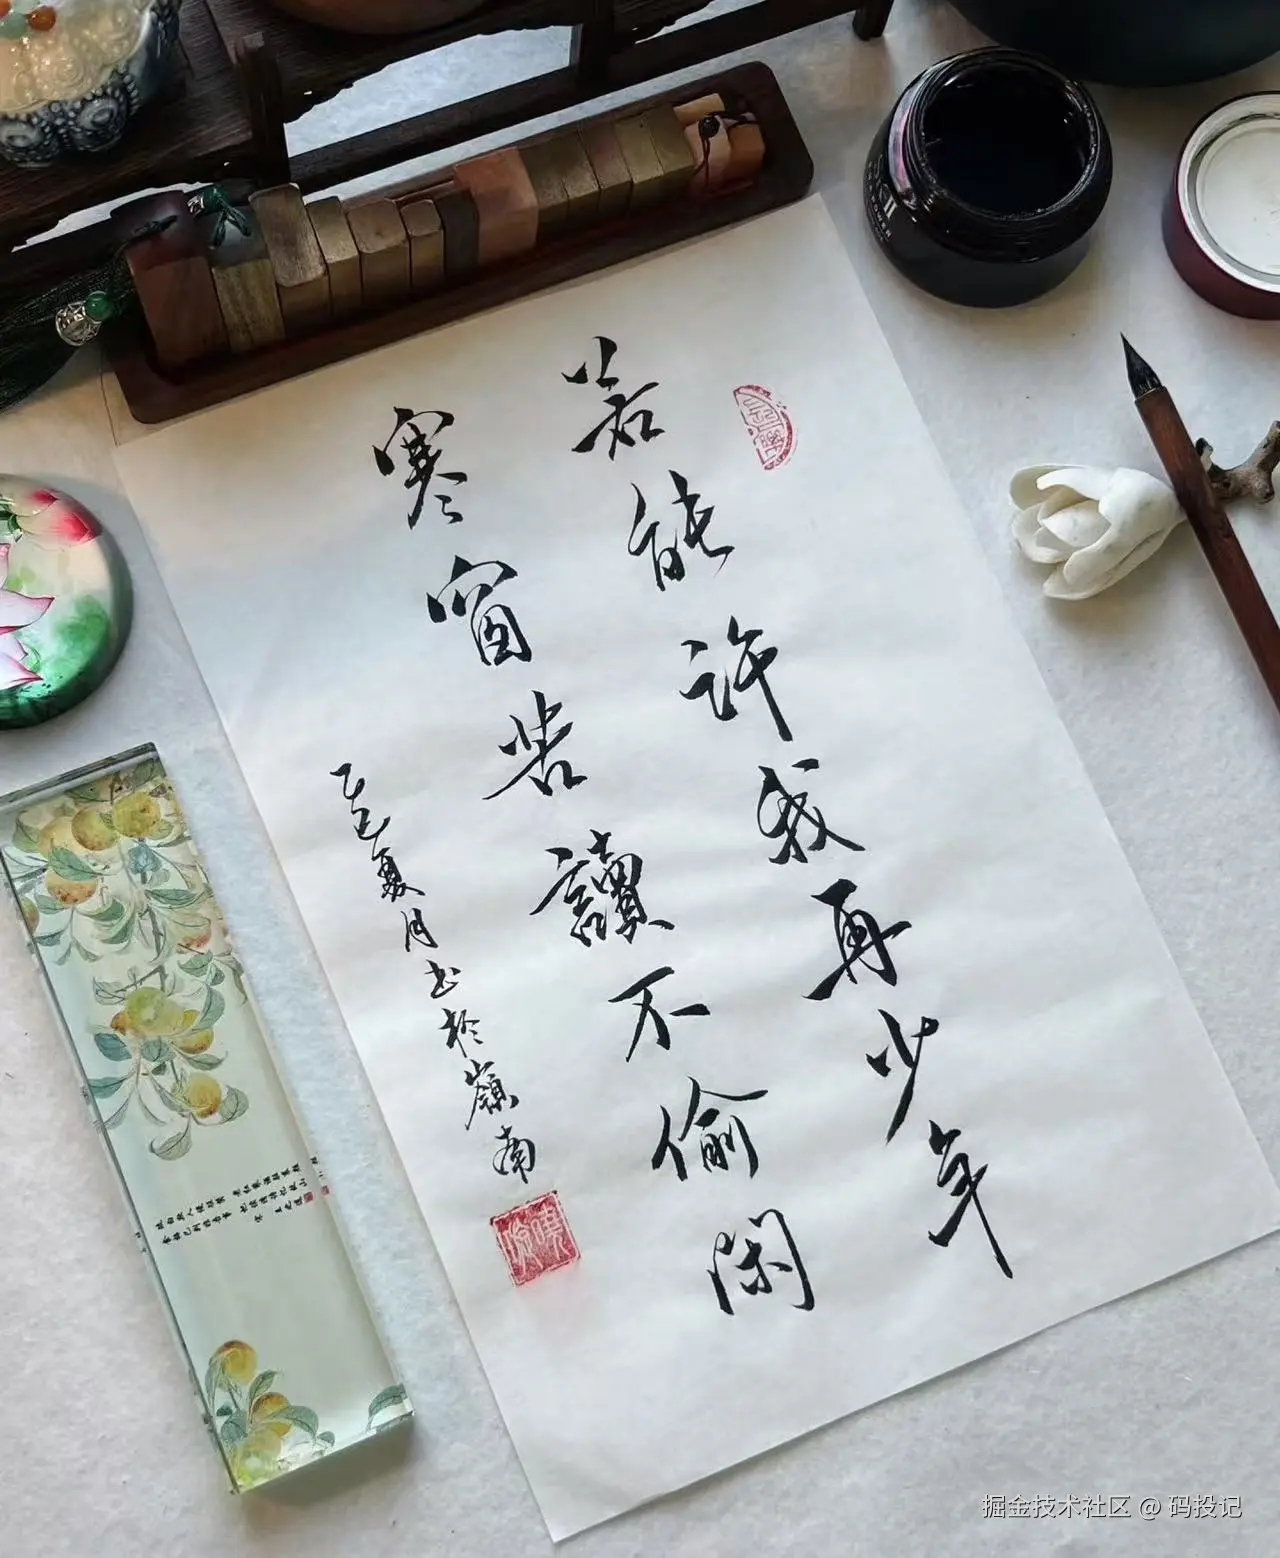 若能许我再少年
寒窗苦讀不偷闲
乙巳夏月书於嶺南
掘金技术社区 @ 码投记